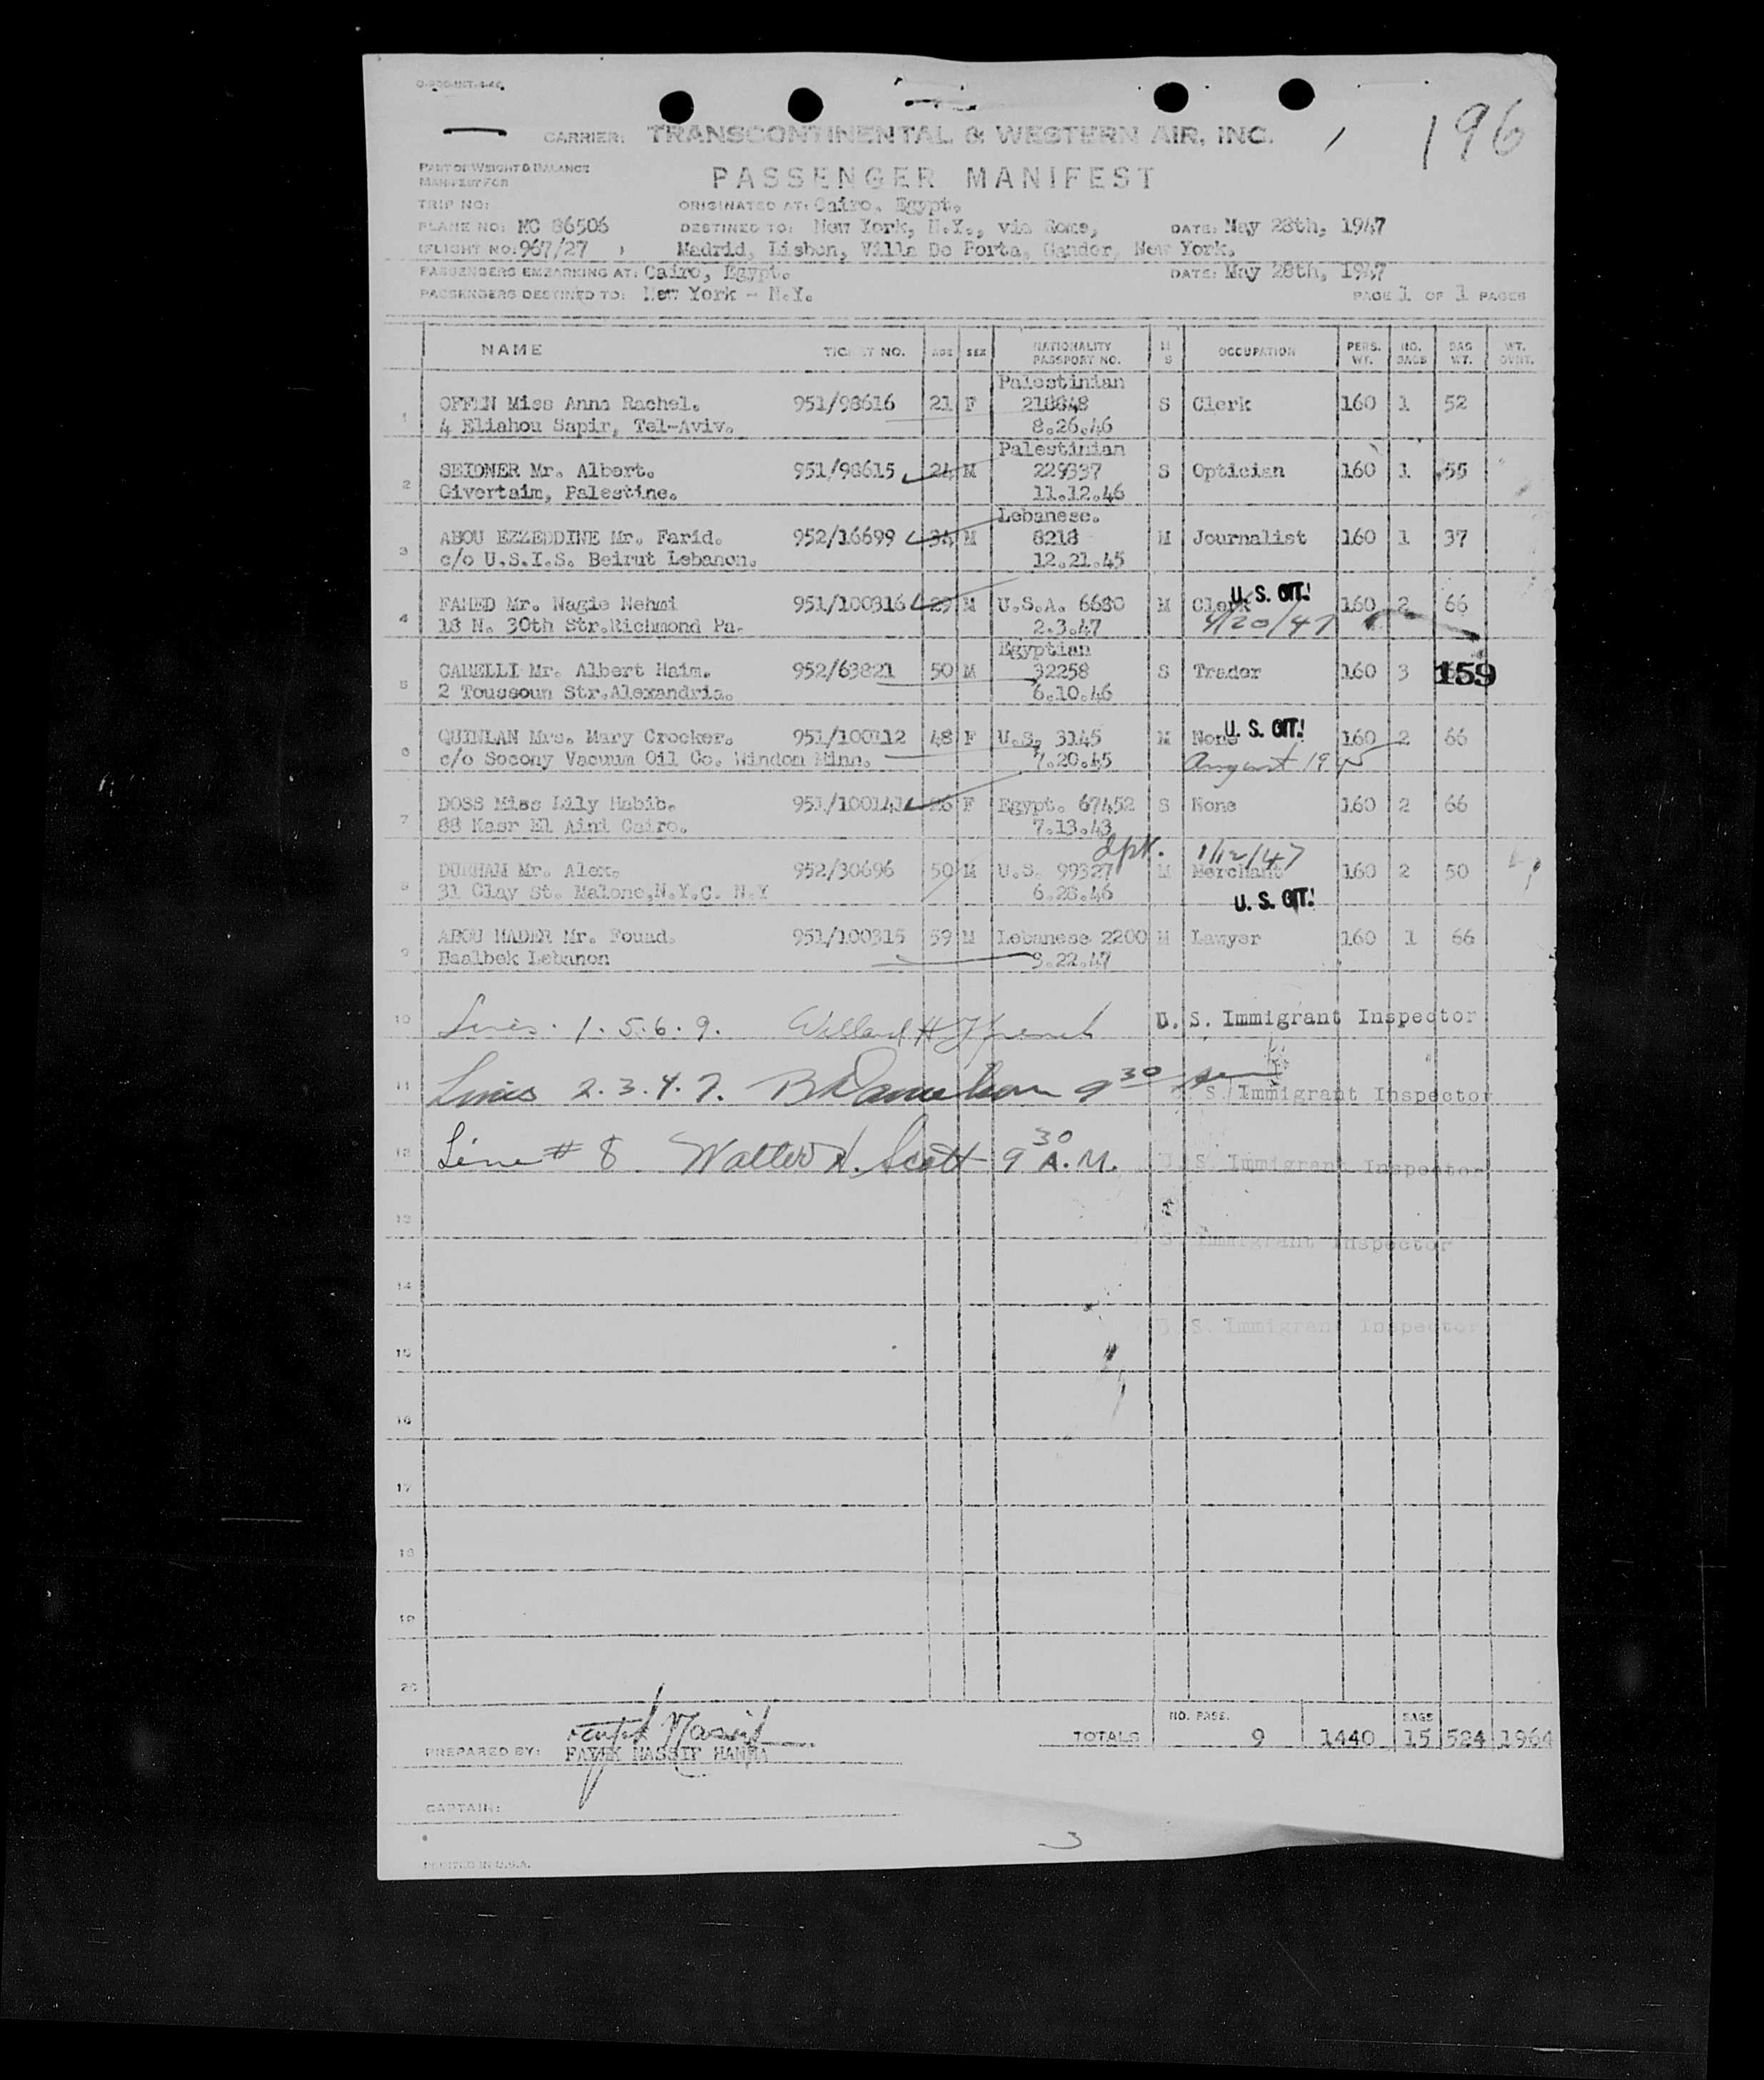 CARRIER: TRANSCONTINENTAL & WESTERN AIR, INC.
196
PART OF WEIGHT & BALANCE
MANIFEST FOR
PASSENGER MANIFEST
TRIP NO:
ORIGINATED AT: Cairo, Egypt.
PLANE NO: NC 86506
DESTINED TO: New York, N.Y., via Rome,
DATE: May 28th, 1947
(FLIGHT NO: 967/27 )
Madrid, Lisbon, Villa Do Porta, Gander, New York.
PASSENGERS EMBARKING AT: Cairo, Egypt.
DATE: May 28th, 1947
PASSENGERS DESTINED TO: New York - N.Y.
PAGE 1 OF 1 PAGES
NAME TICKET NO. AGE SEX NATIONALITY PASSPORT NO. M S OCCUPATION PERS. WT. NO. BAGS BAG WT. WT. OVNT.
Palestinian
1 OFFEN Miss Anna Rachel. 951/98616 21 F 218848 S Clerk 160 1 52
4 Eliahou Sapir, Tel-Aviv. 8.26.46
Palestinian
2 SEIDNER Mr. Albert. 951/98615 24 M 229337 S Optician 160 1 55
Givertaim, Palestine. 11.12.46
Lebanese.
3 ABOU EZZEDDINE Mr. Farid. 952/16699 34 M 8218 M Journalist 160 1 37
c/o U.S.I.S. Beirut Lebanon. 12.21.45
4 FAHED Mr. Nagie Nehmi 951/100316 29 M U.S.A. 6680 M Clerk U. S. CIT. 160 2 66
18 N. 30th Str.Richmond Pa. 2.3.47 4/20/47
Egyptian
5 CAMELLI Mr. Albert Haim. 952/63821 50 M 32258 S Trader 160 3 159
2 Toussoun Str.Alexandria. 6.10.46
6 QUINLAN Mrs. Mary Crocker. 951/100112 48 F U.S. 3145 M None U. S. CIT. 160 2 66
c/o Socony Vacuum Oil Co. Windom Minn. 7.20.45 August 1945
7 DOSS Miss Lily Habib. 951/100141 26 F Egypt. 67452 S None 160 2 66
88 Kasr El Aini Cairo. 7.13.43
dpt. 1/12/47
8 DURHAM Mr. Alex. 952/30696 50 M U.S. 99327 M Merchant 160 2 50
31 Clay St. Malone,N.Y.C. N.Y 6.28.46 U. S. CIT.
9 ABOU HADER Mr. Fouad. 951/100315 59 M Lebanese 2200 M Lawyer 160 1 66
Baalbek Lebanon 3.22.47
10 Lines. 1. 5. 6. 9. Willard H U. S. Immigrant Inspector
11 Lines 2. 3. 4. 7. 9 30 am S Immigrant Inspector
12 Line # 8 Walter H. Scott 9 30 A.M. U S Immigrant Inspector
13
S. Immigrant Inspector
14
U. S. Immigrant Inspector
15
16
17
18
19
20
TOTALS NO. PASS. 9 1440 BAGS 15 524 1964
PREPARED BY: FAYEK NASSIF HANNA
CAPTAIN:
3
PRINTED IN U.S.A.